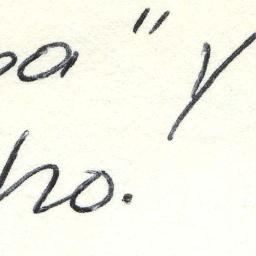 oa" y
ho.